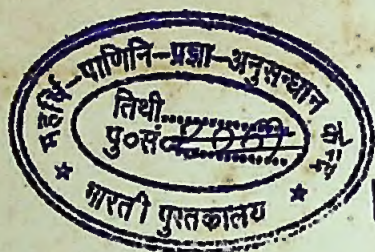 महर्षि–पाणिनि–प्रज्ञा–अनुसन्धान
तिथी..............
पु०सं०
★ भारती पुस्तकालय ★